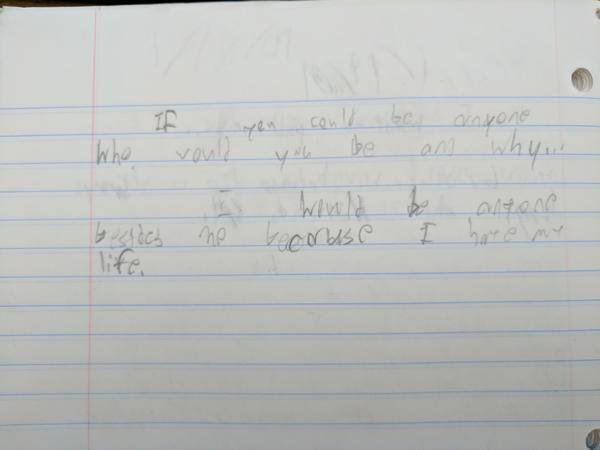 If you could be anyone
who would you be and why...
I would be anyone
besides me becaruse I hate my
life.